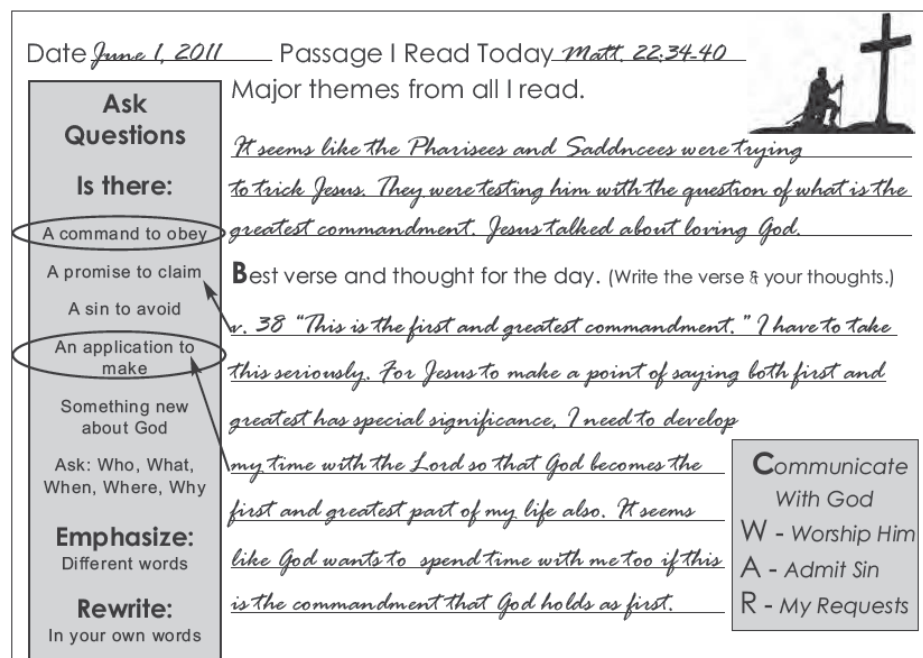 Date June 1, 2011 Passage I Read Today Matt. 22:34-40
Major themes from all I read.
It seems like the Pharisees and Saddncees were trying
to trick Jesus. They were testing him with the question of what is the
greatest commandment. Jesus talked about loving God.
Best verse and thought for the day. (Write the verse & your thoughts.)
v. 38 "This is the first and greatest commandment." I have to take
this seriously. For Jesus to make a point of saying both first and
greatest has special significance, I need to develop
my time with the Lord so that God becomes the
first and greatest part of my life also. It seems
like God wants to spend time with me too if this
is the commandment that God holds as first.
Ask
Questions
Is there:
A command to obey
A promise to claim
A sin to avoid
An application to
make
Something new
about God
Ask: Who, What,
When, Where, Why
Emphasize:
Different words
Rewrite:
In your own words
Communicate
With God
W - Worship Him
A - Admit Sin
R - My Requests